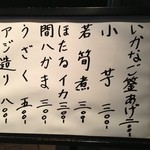 いかなご釜あげ 三〇〇
小芋 三〇〇
若筍煮 三〇〇
ほたるイカ 三〇〇
閖はかま 三〇〇
うざく 五〇〇
アジ造り 八〇〇